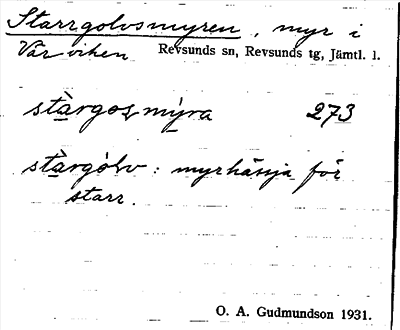 Starrgolvsmyren, myr i
Vår viken Revsunds sn, Revsunds tg, Jämtl. l.
stàrgoḷvmýra 273
stàrgòḷv : myrhässja för
starr.
O. A. Gudmundson 1931.